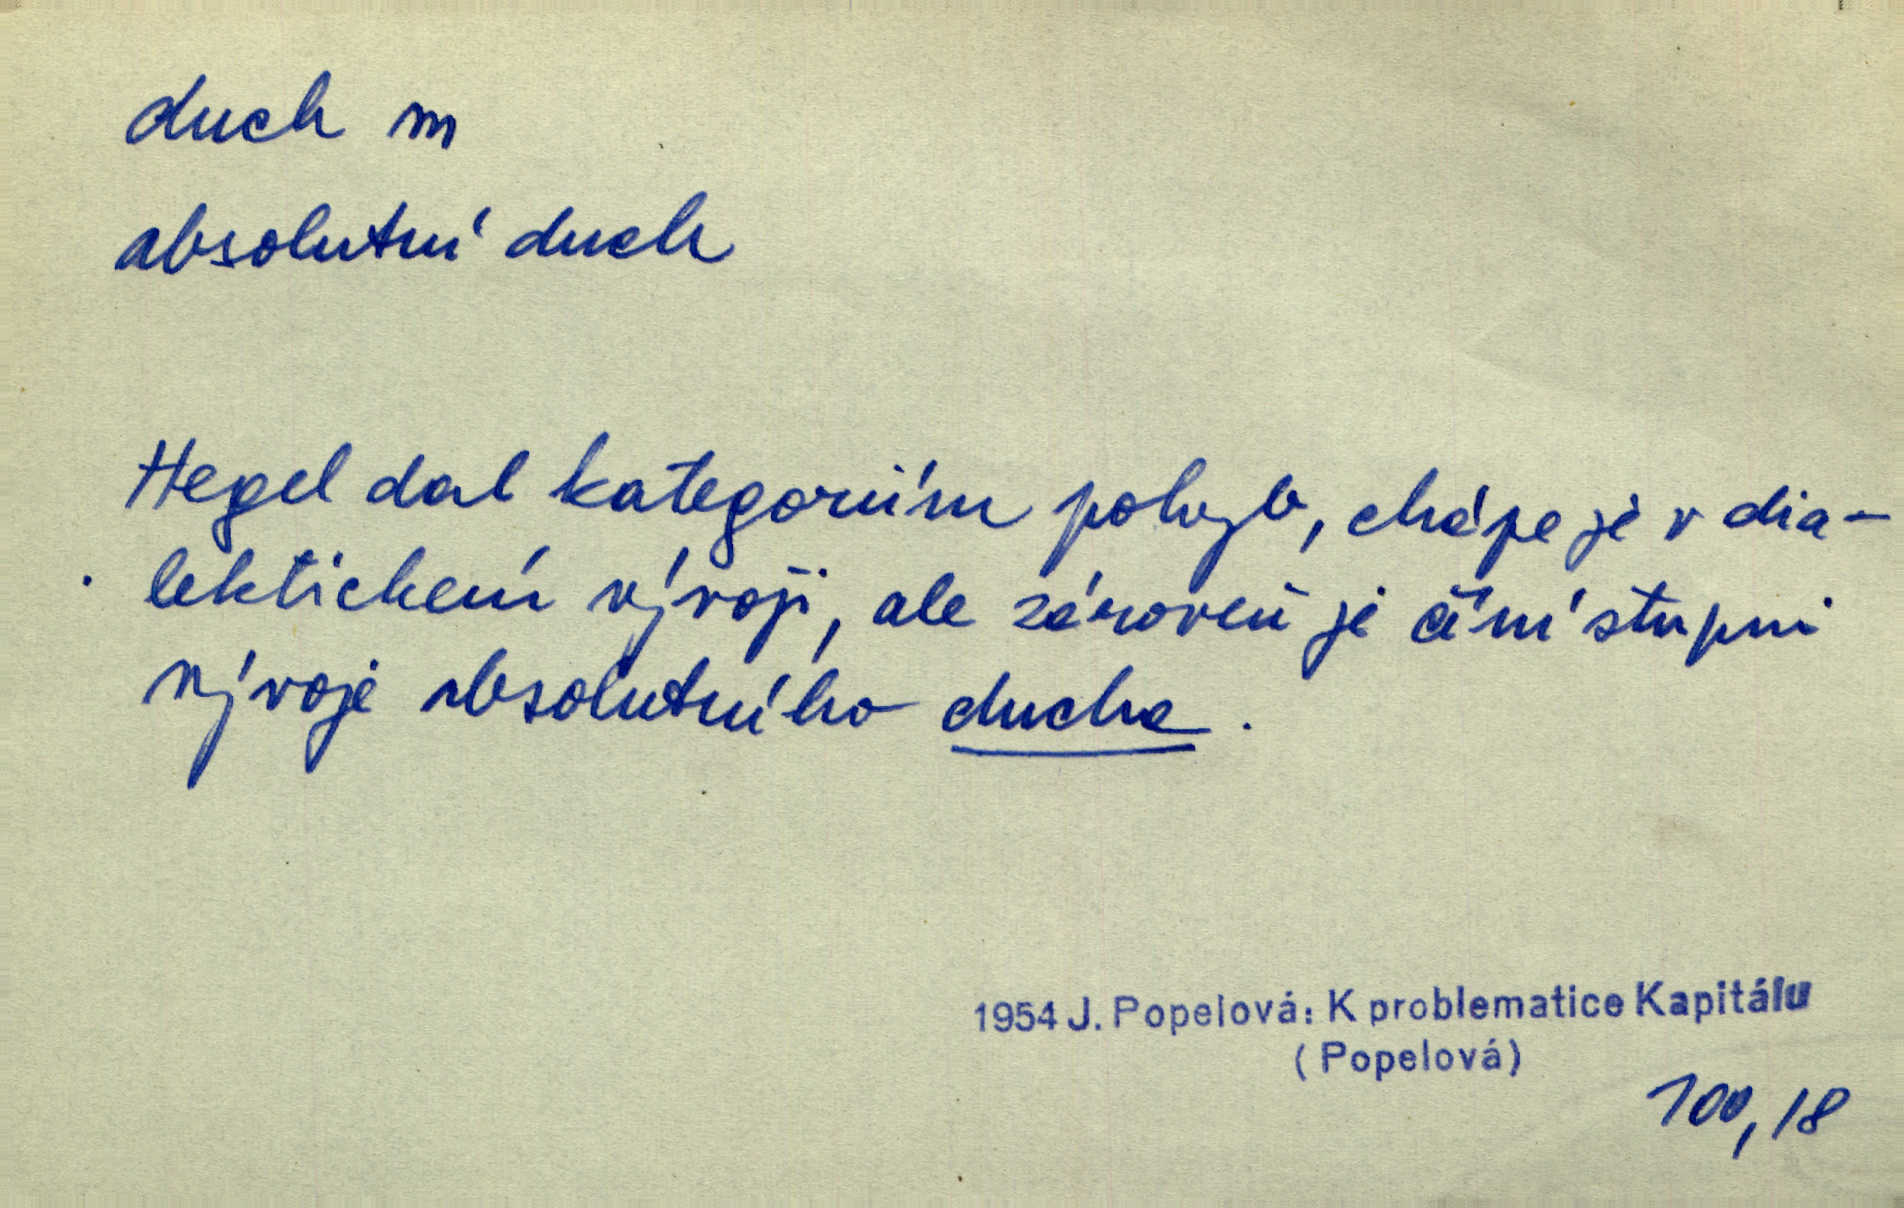 duch m
absolutní duch
Hegel dal kategoriím pohyb, chápe je v dia-
lektickém vývoji, ale zároveň je činí stupni
vývoje absolutního ducha.
1954 J. Popelová: K problematice Kapitálu
(Popelová)
100,18